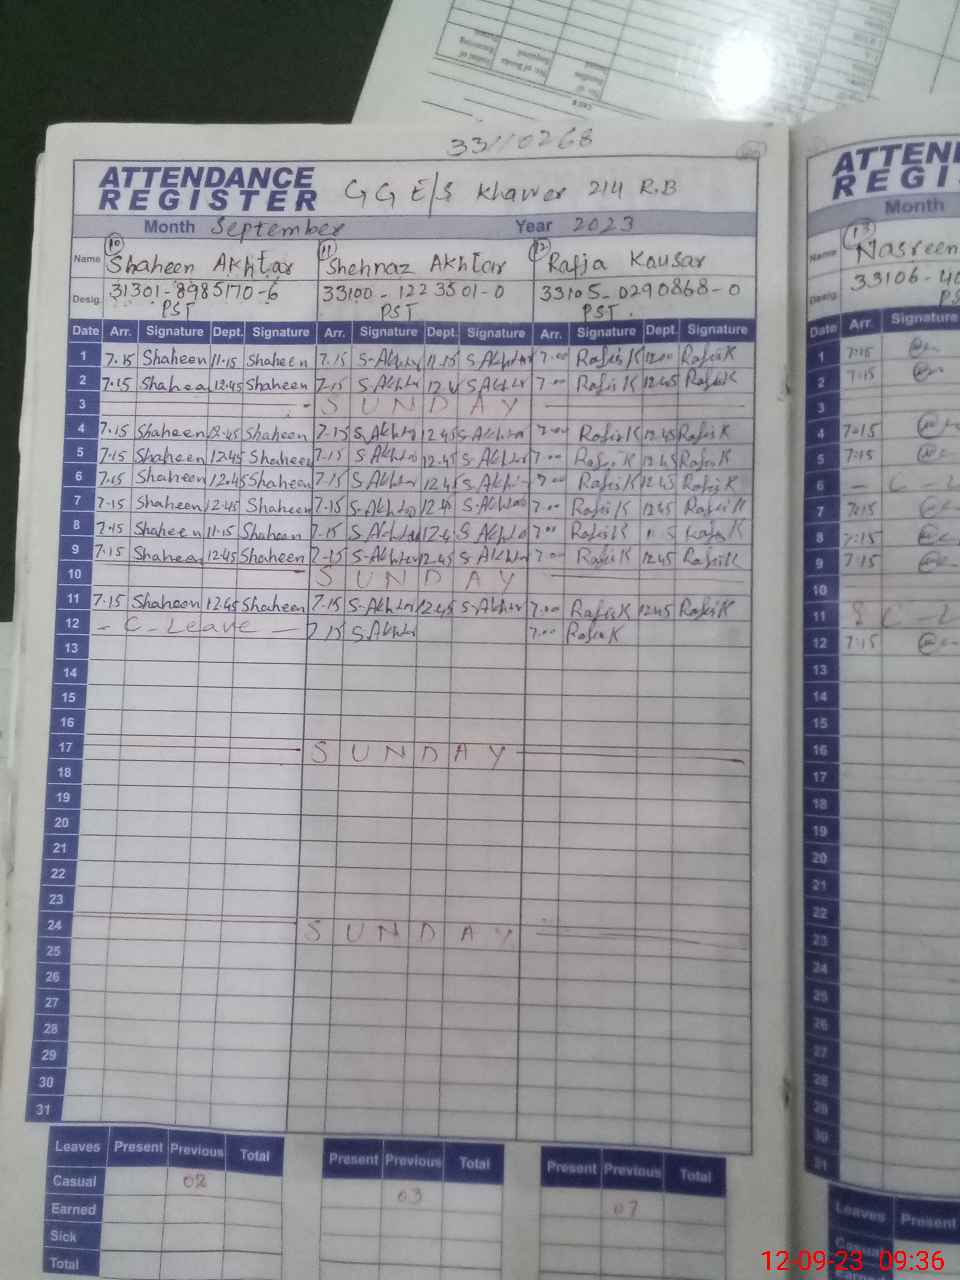 33110268
ATTENDANCE REGISTER G G E/S Khawer 214 R.B
Month September Year 2023
Name 10 Shaheen Akhtar 11 Shehnaz Akhtar 12 Rafia Kausar
Desig. 31301-8985170-6 PST 33100-1223501-0 PST 33105-0290868-0 PST
Date Arr. Signature Dept. Signature Arr. Signature Dept. Signature Arr. Signature Dept. Signature
1 7.15 Shaheen 11.15 Shaheen 7.15 S-Akhtar 11.15 S Akhtar 7.00 Rafia K 12.00 Rafia K
2 7.15 Shaheen 12.45 Shaheen 7.15 S.Akhtar S.Akhtar 7.00 Rafia K 12.45 Rafia K
3 SUNDAY
4 7.15 Shaheen 12.45 Shaheen 7.15 S.Akhtar 12.45 S.Akhtar 7.00 Rafia K 12.45 Rafia K
5 7.15 Shaheen 12.45 Shaheen 7.15 S.Akhtar 12.45 S-Akhtar 7.00 Rafia K 12.45 Rafia K
6 7.15 Shaheen 12.45 Shaheen 7.15 S.Akhtar 12.45 S.Akhtar 7.00 Rafia K 12.45 Rafia K
7 7.15 Shaheen 12.45 Shaheen 7.15 S-Akhtar 12.45 S-Akhtar 7.00 Rafia K 12.45 Rafia K
8 7.15 Shaheen 11.15 Shaheen 7.15 S.Akhtar S Akhtar 7.00 Rafia K Rafia K
9 7.15 Shaheen 12.45 Shaheen 7.15 S-Akhtar 12.45 S Akhtar 7.00 Rafia K 12.45 Rafia K
10 SUNDAY
11 7.15 Shaheen 12.45 Shaheen 7.15 S-Akhtar 12.45 S-Akhtar 7.00 Rafia K 12.45 Rafia K
12 - C - Leave - 7.15 S.Akhtar 7.00 Rafia K
13
14
15
16
17 SUNDAY
18
19
20
21
22
23
24 SUNDAY
25
26
27
28
29
30
31
Leaves Present Previous Total Present Previous Total Present Previous Total
Casual 02 03 07
Earned
Sick
Total
ATTEN
REGIS
Month
Name 13 Nasreen
Desig. 33106-40
Date Arr. Signature
1 7:15
2 7:15
3
4 7:15
5 7:15
6 - C - L
7 7:15
8 7:15
9 7:15
10
11 C - L
12 7:15
13
14
15
16
17
18
19
20
21
22
23
24
25
26
27
28
29
30
31
Leaves Present
Casual
12-09-23 09:36